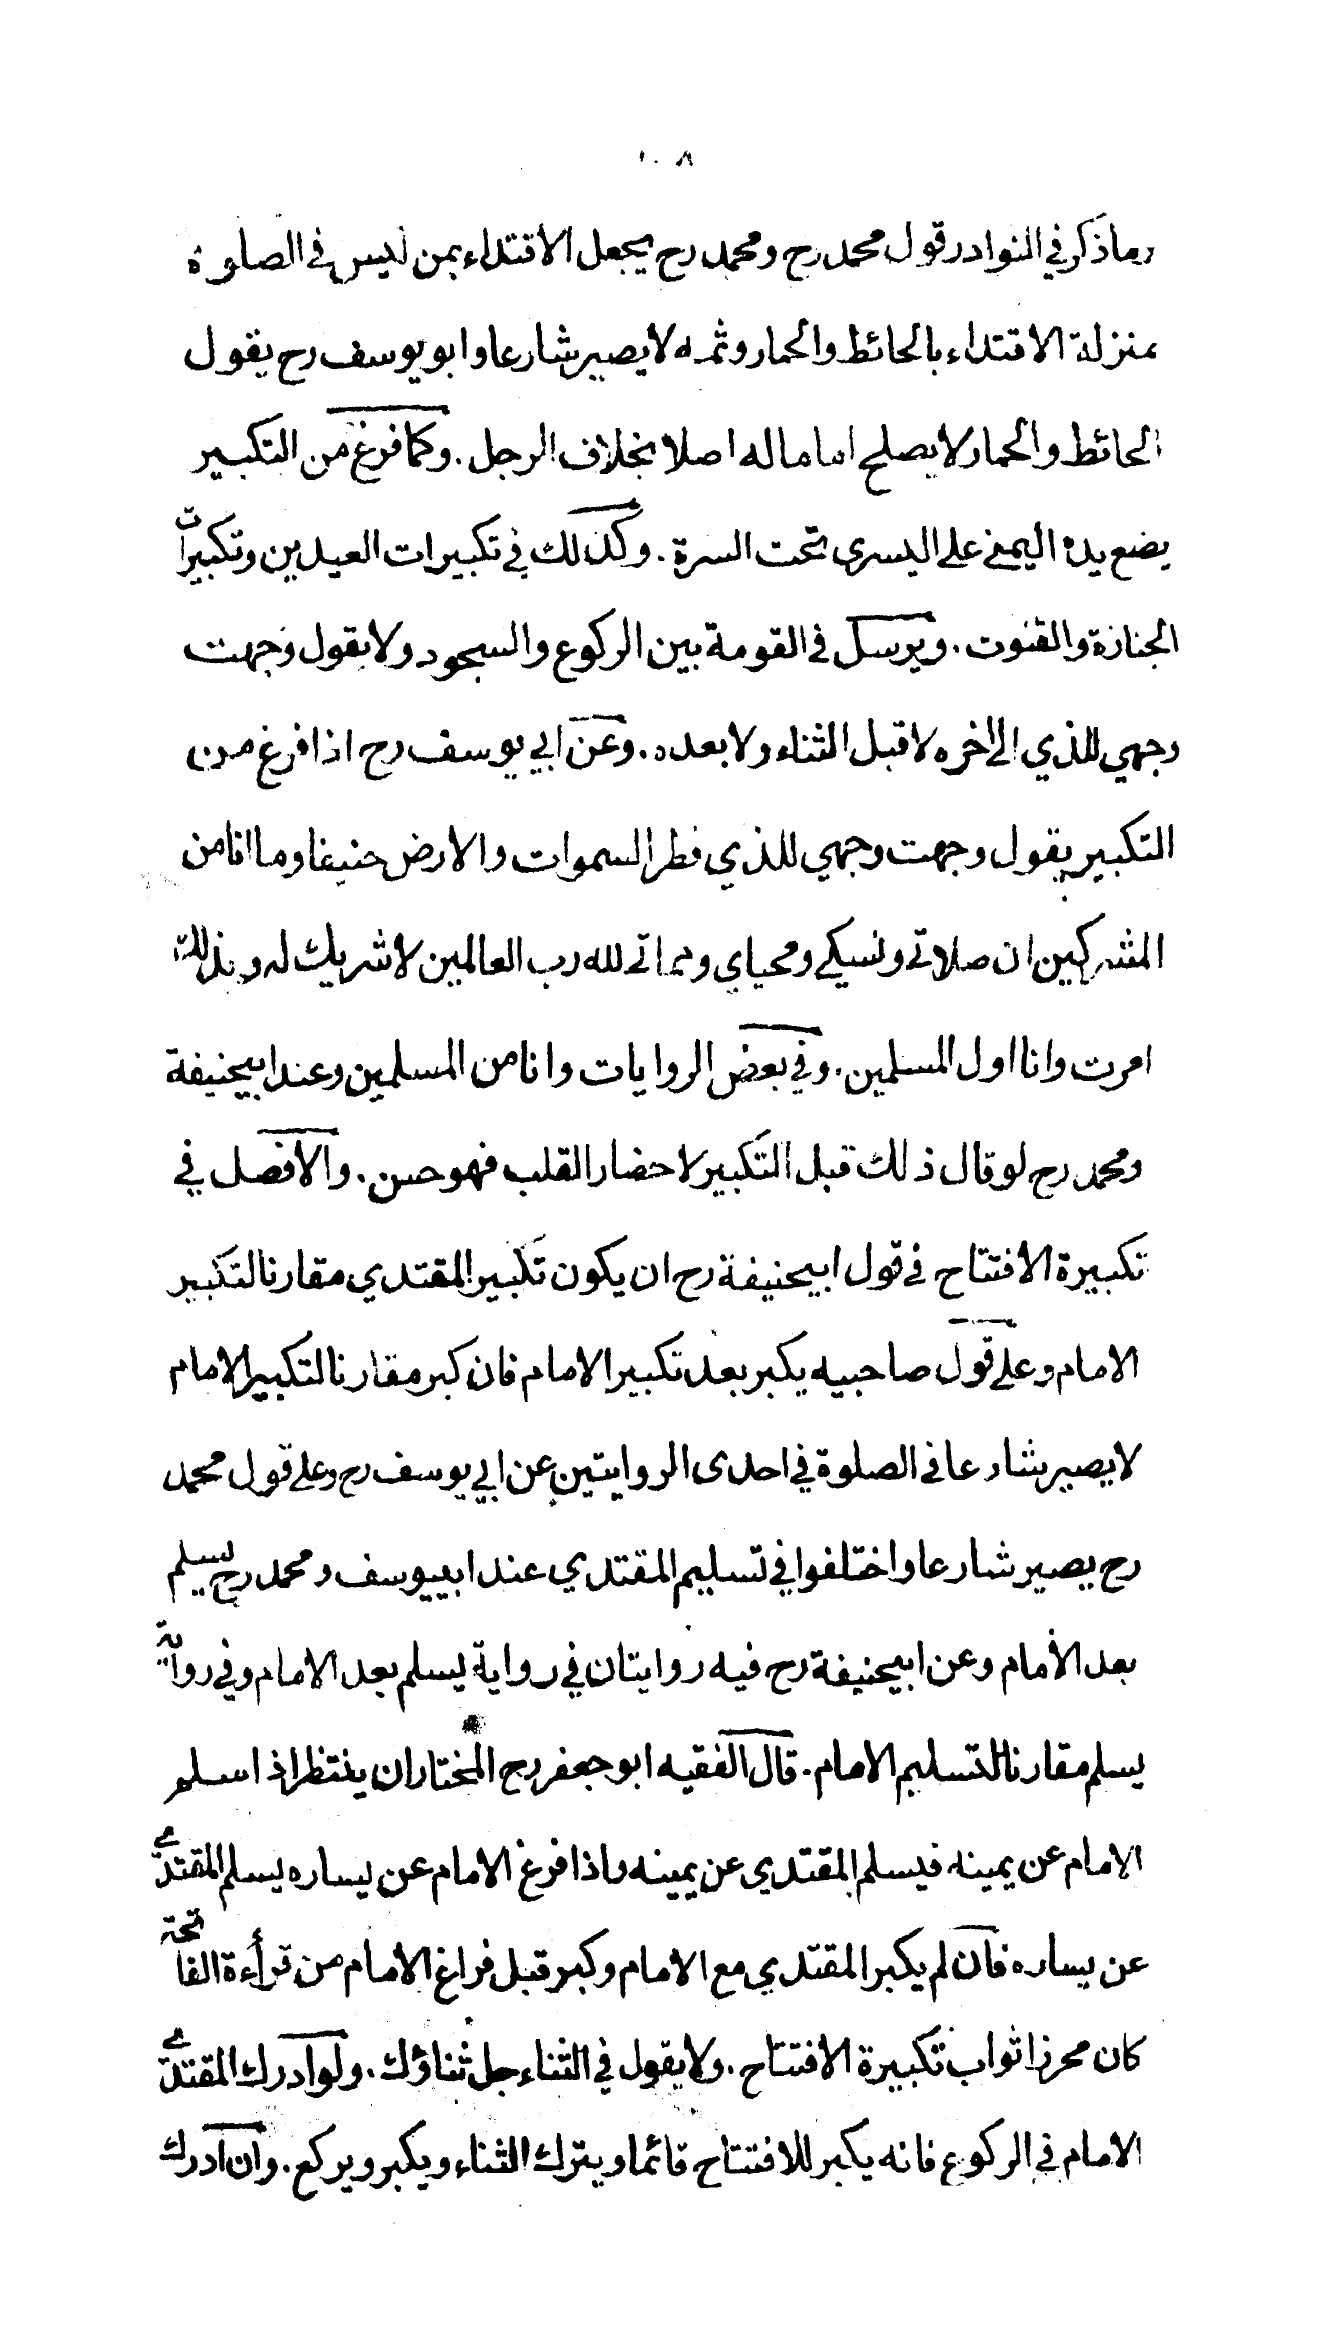 ١٠٨
وما ذكر في النوادر قول محمد رح ومحمد رح يجعل الاقتداء بمن ليس في الصلوة
بمنزلة الاقتداء بالحائط والحمار وثمه لا يصير شارعا وابو يوسف رح يقول
الحائط والحمار لا يصلح اماما له اصلا بخلاف الرجل . وكما فرغ من التكبير
يضع يده اليمنى على اليسرى تحت السرة . وكذلك في تكبيرات العيدين وتكبيرات
الجنازة والقنوت . ويرسل في القومة بين الركوع والسجود ولا يقول وجهت
وجهي للذي الى اخره لا قبل الثناء ولا بعده . وعن ابي يوسف رح اذا فرغ من
التكبير يقول وجهت وجهي للذي فطر السموات والارض حنيفا وما انا من
المشركين ان صلاتي ونسكي ومحياي ومماتي لله رب العالمين لا شريك له وبذلك
امرت وانا اول المسلمين . وفي بعض الروايات وانا من المسلمين وعند ابيحنيفة
ومحمد رح لو قال ذلك قبل التكبير لاحضار القلب فهو حسن . والافضل في
تكبيرة الافتتاح في قول ابيحنيفة رح ان يكون تكبير المقتدي مقارنا لتكبير
الامام وعلى قول صاحبيه يكبر بعد تكبير الامام فان كبر مقارنا لتكبير الامام
لا يصير شارعا في الصلوة في احدى الروايتين عن ابي يوسف رح وعلى قول محمد
رح يصير شارعا واختلفوا في تسليم المقتدي عند ابييوسف ومحمد رح يسلم
بعد الامام وعن ابيحنيفة رح فيه روايتان في رواية يسلم بعد الامام وفي رواية
يسلم مقارنا لتسليم الامام . قال الفقيه ابو جعفر رح المختار ان ينتظر اذا سلم
الامام عن يمينه فيسلم المقتدي عن يمينه واذا فرغ الامام عن يساره يسلم المقتدي
عن يساره فان لم يكبر المقتدي مع الامام وكبر قبل فراغ الامام من قرأءة الفاتحة
كان محرزا ثواب تكبيرة الافتتاح . ولا يقول في الثناء جل ثناؤك . ولو ادرك المقتدي
الامام في الركوع فانه يكبر للافتتاح قائما ويترك الثناء ويكبر ويركع . وان ادرك